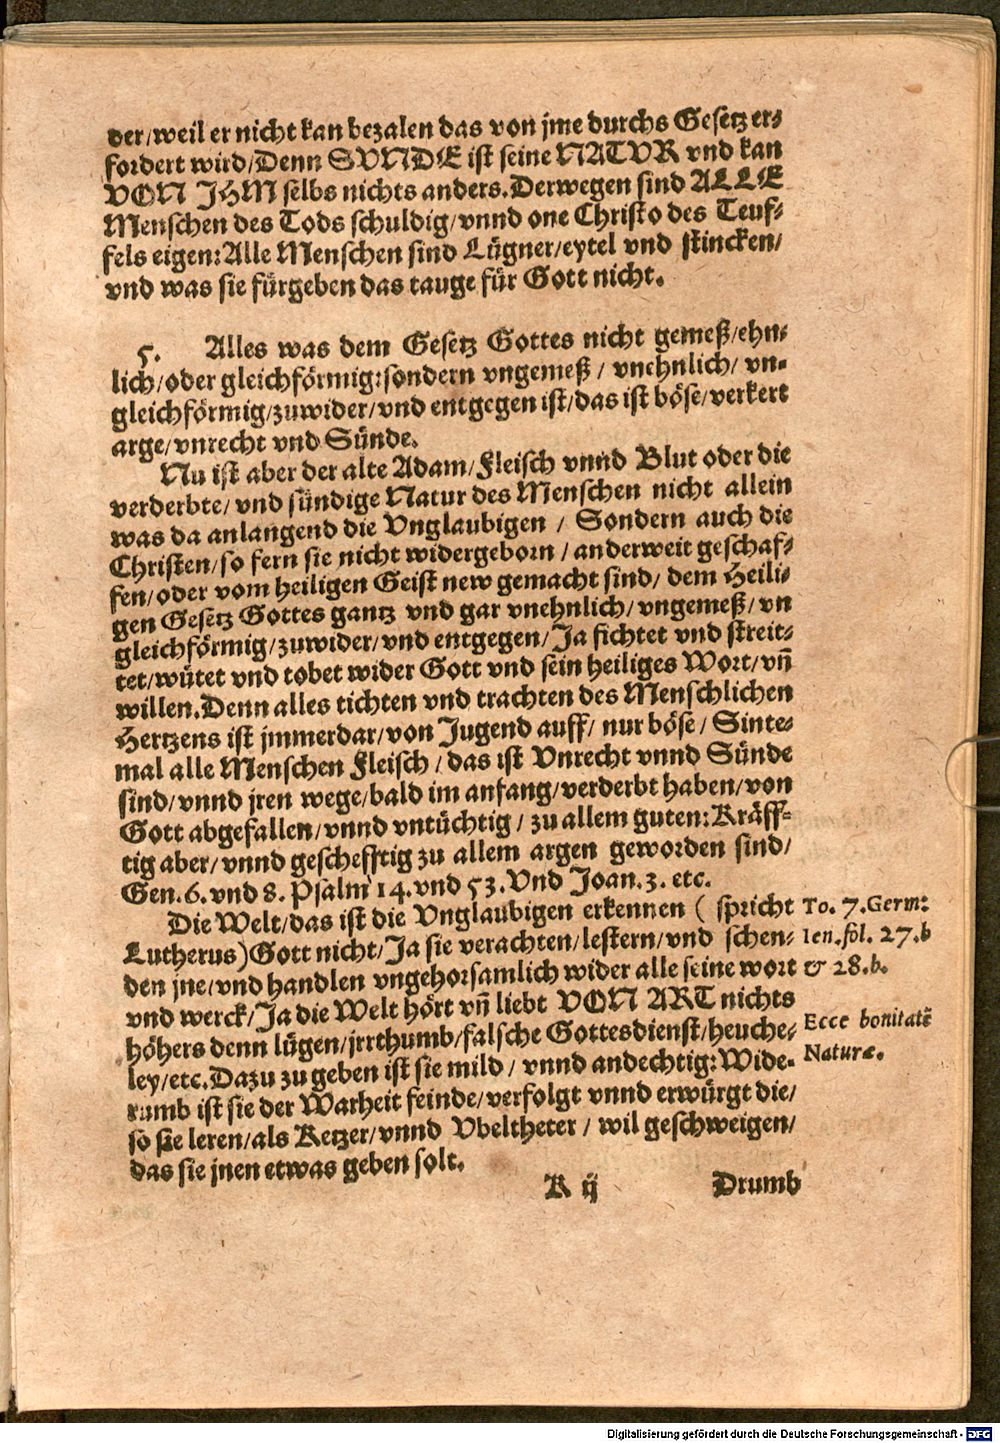 der/weil er nicht kan bezalen das von jme durchs Gesetz er-
fordert wird/Denn SVNDE ist seine NATVR vnd kan
VON JHM selbs nichts anders. Derwegen sind ALLE
Menschen des Tods schuldig/vnnd one Christo des Teuf-
fels eigen: Alle Menschen sind Lügner/eytel vnd stincken/
vnd was sie fürgeben das tauge für Gott nicht.
5. Alles was dem Gesetz Gottes nicht gemeß/ehn-
lich/oder gleichförmig: sondern vngemeß/ vnehnlich/ vn-
gleichförmig/zuwider/vnd entgegen ist/das ist böse/verkert
arge/vnrecht vnd Sünde.
Nu ist aber der alte Adam/Fleisch vnnd Blut oder die
verderbte/ vnd sündige Natur des Menschen nicht allein
was da anlangend die Vnglaubigen / Sondern auch die
Christen/so fern sie nicht widergeborn / anderweit geschaf-
fen/oder vom heiligen Geist new gemacht sind/ dem Heili-
gen Gesetz Gottes gantz vnd gar vnehnlich/vngemeß/vn
gleichförmig/zuwider/vnd entgegen/Ja fichtet vnd streit-
tet/wütet vnd tobet wider Gott vnd sein heiliges Wort/vñ
willen. Denn alles tichten vnd trachten des Menschlichen
Hertzens ist jmmerdar/von Jugend auff/ nur böse/ Sinte-
mal alle Menschen Fleisch / das ist Vnrecht vnnd Sünde
sind/vnnd jren wege/bald im anfang/verderbt haben/von
Gott abgefallen/vnnd vntüchtig / zu allem guten: Kräff-
tig aber/vnnd geschefftig zu allem argen geworden sind/
Gen. 6. vnd 8. Psalm 14. vnd 53. Vnd Joan. 3. etc.
Die Welt/das ist die Vnglaubigen erkennen ( spricht
Lutherus) Gott nicht/Ja sie verachten/lestern/vnd schen-
den jne/vnd handlen vngehorsamlich wider alle seine wort
vnd werck/Ja die Welt hört vñ liebt VON ART nichts
höhers denn lügen/jrrthumb/falsche Gottesdienst/heuche-
ley/etc. Dazu zu geben ist sie mild / vnnd andechtig: Wide-
rumb ist sie der Warheit feinde/verfolgt vnnd erwürgt die/
so sie leren/als Ketzer/vnnd Vbeltheter / wil geschweigen/
das sie jnen etwas geben solt.
To. 7. Germ:
Ien. fol. 27. b
& 28. b.
Ecce bonitatē
Naturæ.
K ij Drumb
Digitalisierung gefördert durch die Deutsche Forschungsgemeinschaft - DFG